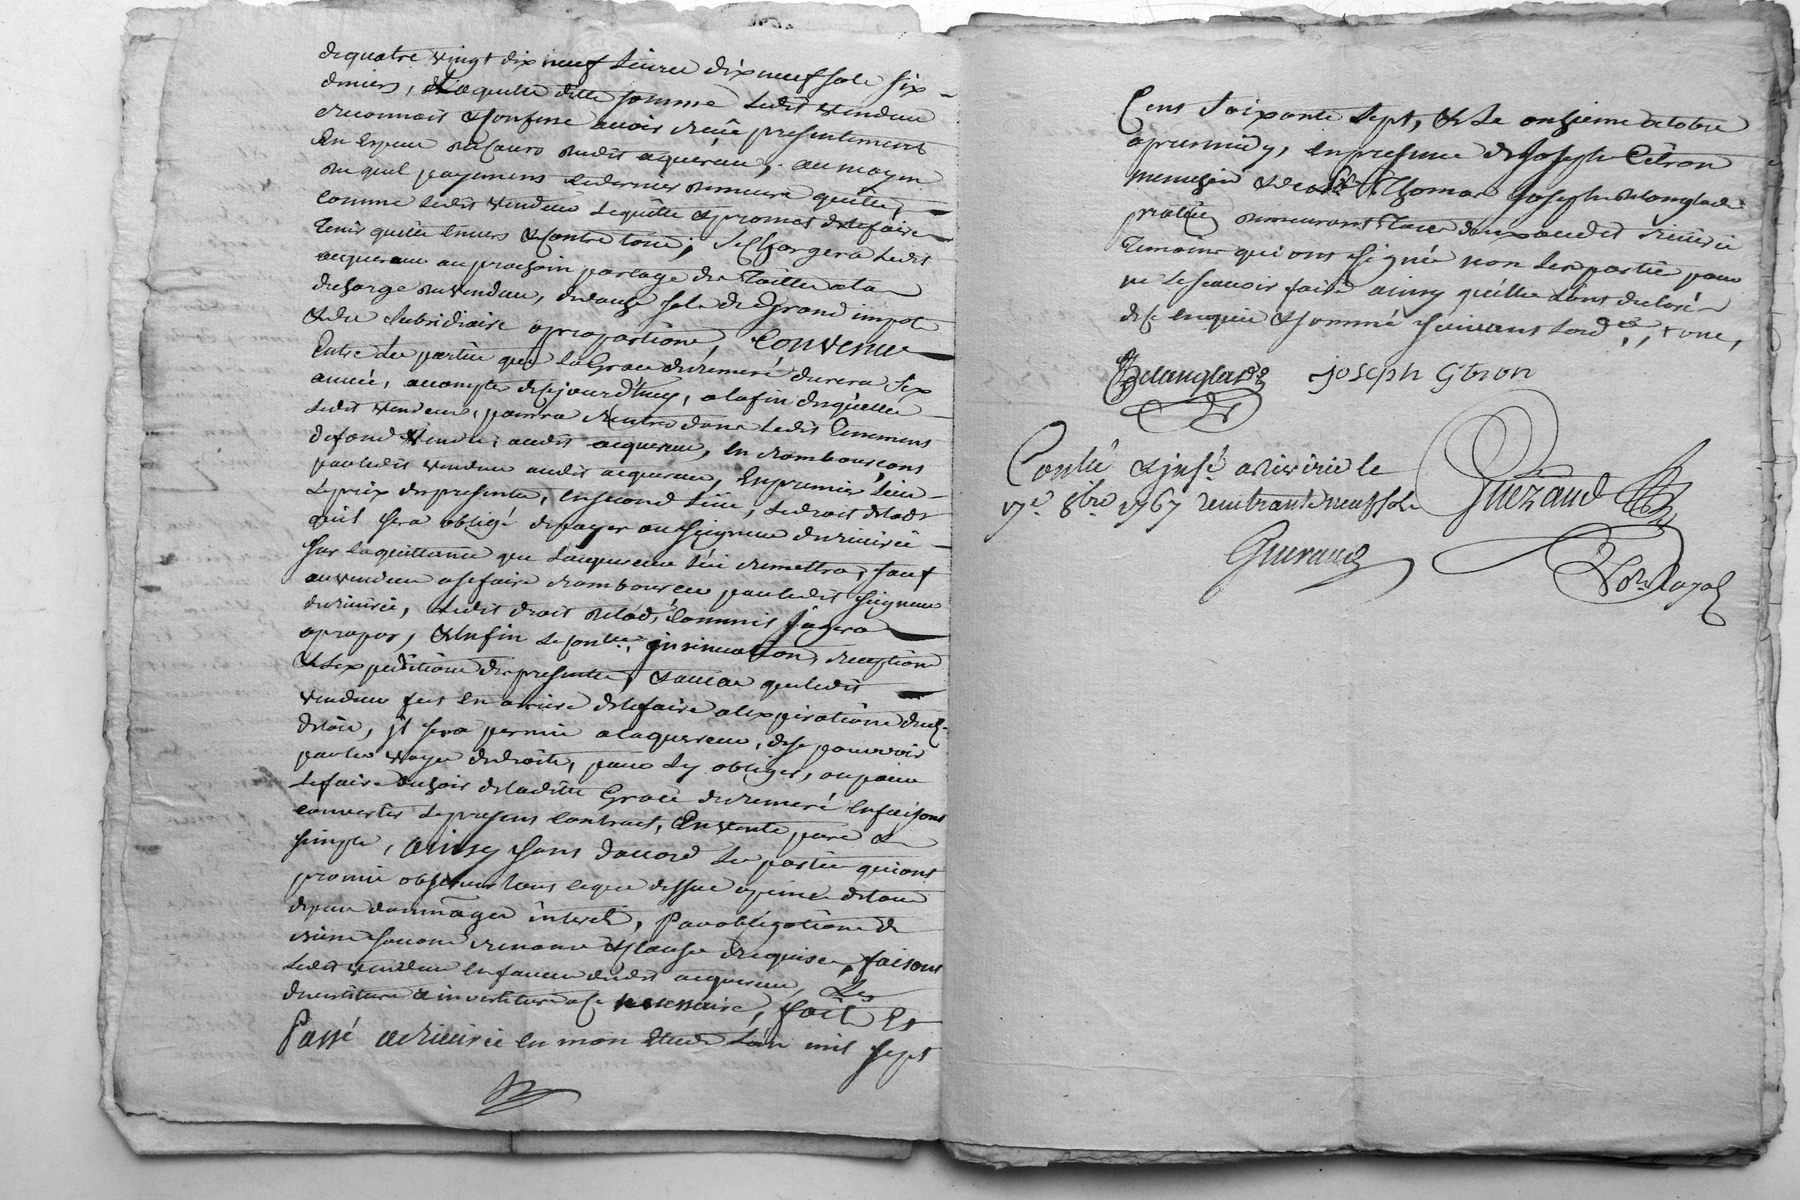 de quatre vingt dix neuf livres dix neuf sols six
deniers, de laquelle ditte somme ledit vendeur
reconnoit & confesse avoir reçüe presentement
en especes de cours dudit aquereur, au moyen
du quel payement ce dernier demeure quitte,
comme ledit vendeur le quitte & promet de le faire
tenir quitte envers & contre tous; se chargera ledit
aquereur au prochain partage des tailles a la
decharge du vendeur, de sols de grand impot
& du subsidiaire a proportion, Convenu
Entre les parties que la grace de remeré durera six
années, a compter de ce jourd'huy, a la fin desquelles
ledit vendeur, pourra rentrer dans ledit tenement
de fond vendu, audit aquereur, en rembourçant
par ledit vendeur audit aquereur, En premier lieu
le prix des presentes, en second lieu, le droit de lods
qu'il sera obligé de payer au seigneur de riviere
sur la quittance que l'aquereur lui remettra, sauf
au vendeur a se faire rembourcer par ledit seigneur
de riviere, ledit droit de lods, comme il jugera
a propos, & enfin le Conlle, insinuation, reception
& expeditions des presentes, & au cas que ledit
vendeur fut en arriere de le faire a l'expiration dud.
delai, il sera permis a l'aquereur, de se pourvoir
par les voyes de droits, pour l'y obliger, ou pour
le faire dechoir de laditte grace de remeré en faisant
convertir le present contract, En vente pure &
simple, ainsy sont d'accord les parties qui ont
promis observer tout ce que dessus a peine de tous
depens dommages interets, par obligations de
biens soumis renonce & clauses requises, faisant
ledit vendeur en faveur dudit aquereur, Les
devestiture & investiture a ce necessaire, fait Et
Passé a riviere en mon etude l'an mil sept
Cent soixante sept, & le onzieme octobre
apres midy, en presence de Joseph Citron
menuisier & de Sr Thomas Joseph Delanglade
praticien demeurants audit riviere
temoins qui ont signé non les parties pour
ne le scavoir faire ainsy qu'elles l'ont declaré
de ce enquis & sommé suivant l'ord.ce
Delanglade Joseph Gtron
Contlé & insé a riviere le
17e 8bre 1767 neuf sols
Guérand
Guerand